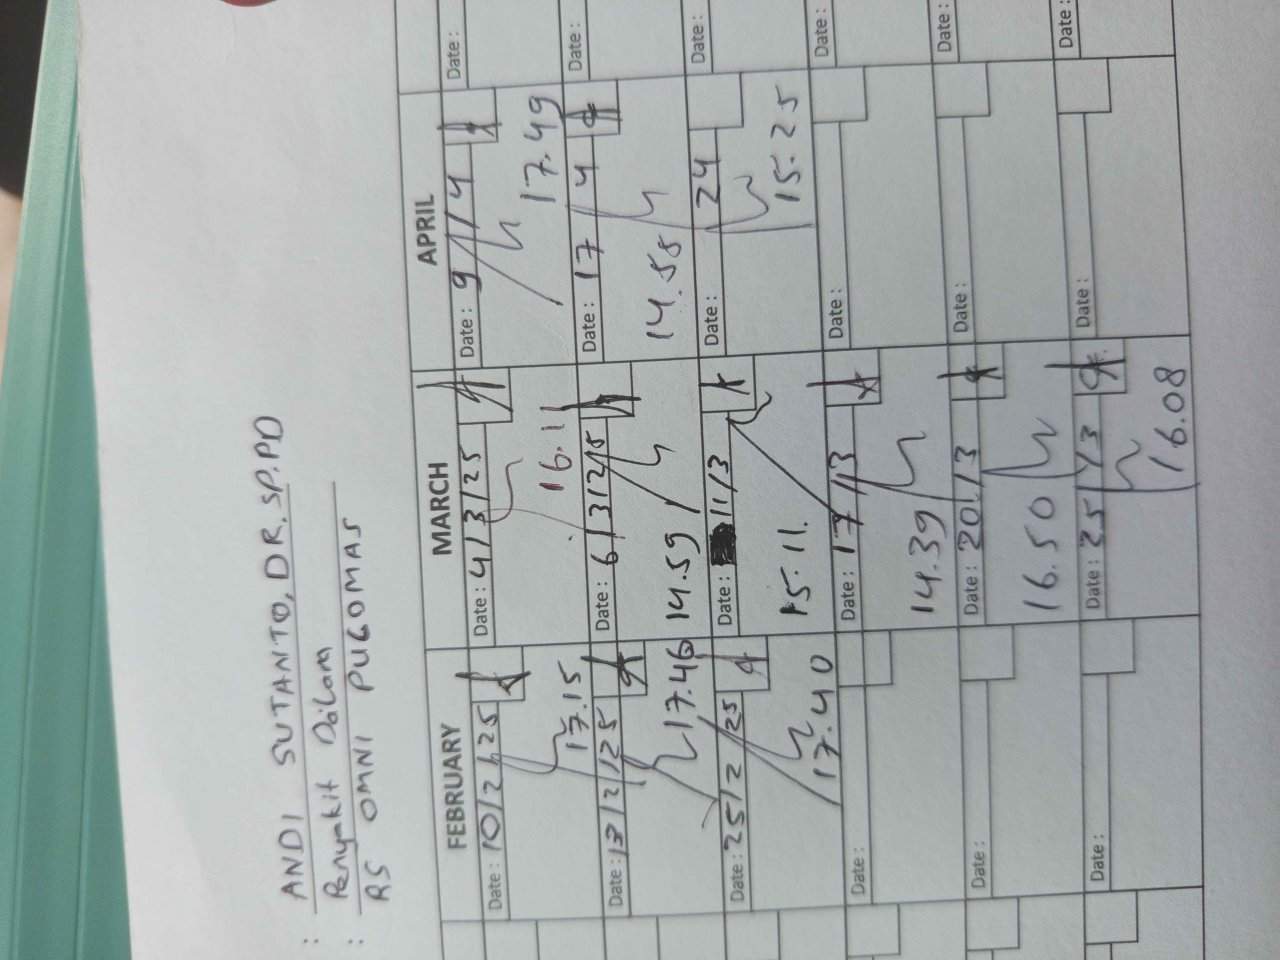 : ANDI SUTANTO, DR, SP.PD
Penyakit Dalam
: RS OMNI PULOMAS
FEBRUARY MARCH APRIL
Date: 10/2/25 Date: 4/3/25 Date: 9/4 Date:
17.15 16.11 17.49
Date: 17/2/25 Date: 6/3/25 Date: 17/4 Date:
17.46 14.59 14.58
Date: 25/2/25 Date: 11/3 Date: 24 Date:
17.40 15.11. 15.25
Date: Date: 17/3 Date: Date:
14.39
Date: Date: 20/3 Date: Date:
16.50
Date: Date: 25/3 Date: Date:
16.08